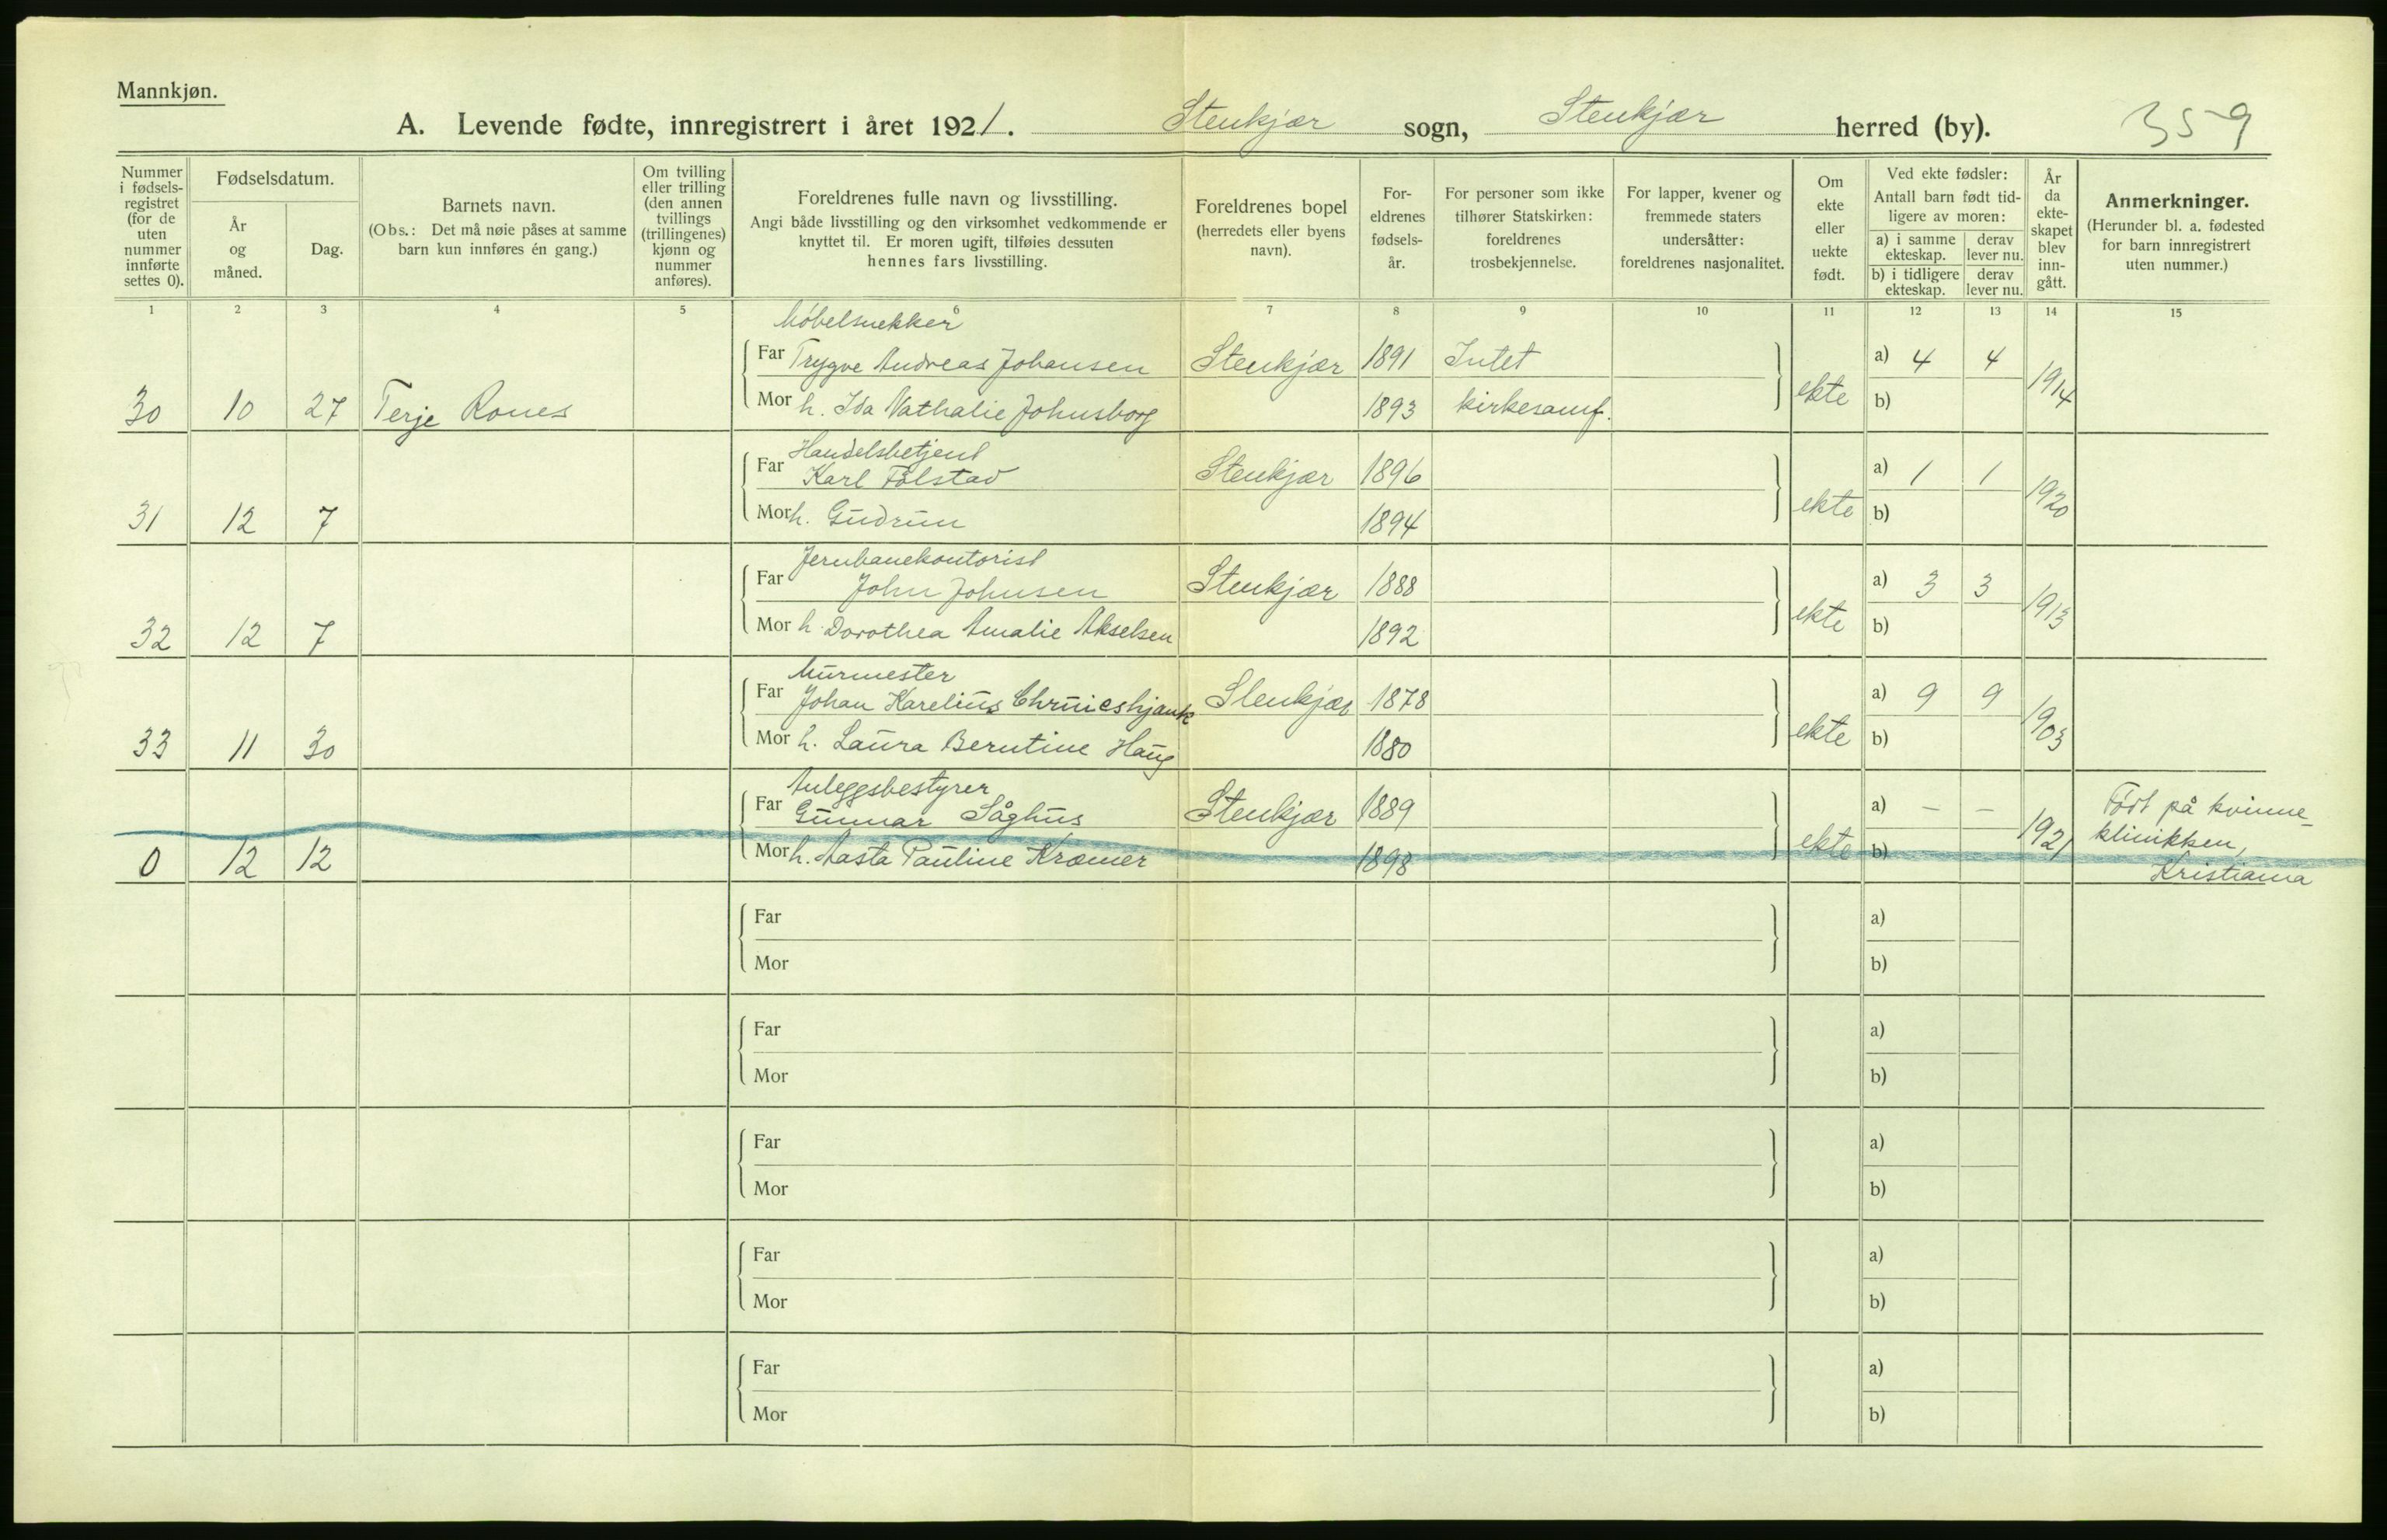 Mannkjøn.
A. Levende fødte, innregistrert i året 1921. Stenkjær sogn, Stenkjær herred (by). 359
Nummer i fødsels-registret (for de uten nummer innførte settes 0).
Fødselsdatum.
År og måned.
Dag.
Barnets navn.
(Obs.: Det må nøie påses at samme barn kun innføres én gang.)
Om tvilling eller trilling (den annen tvillings (trillingenes) kjønn og nummer anføres).
Foreldrenes fulle navn og livsstilling.
Angi både livsstilling og den virksomhet vedkommende er knyttet til. Er moren ugift, tilføies dessuten hennes fars livsstilling.
Foreldrenes bopel (herredets eller byens navn).
For-eldrenes fødsels-år.
For personer som ikke tilhører Statskirken: foreldrenes trosbekjennelse.
For lapper, kvener og fremmede staters undersåtter: foreldrenes nasjonalitet.
Om ekte eller uekte født.
Ved ekte fødsler:
Antall barn født tid-ligere av moren:
a) i samme ekteskap. derav lever nu.
b) i tidligere ekteskap. derav lever nu.
År da ekte-skapet blev inn-gått.
Anmerkninger.
(Herunder bl. a. fødested for barn innregistrert uten nummer.)
1 2 3 4 5 6 7 8 9 10 11 12 13 14 15
Möbelsnekker
Far Trygve Andreas Johansen Stenkjær 1891 Intet a) 4 4
30 10 27 Terje Rones Mor h. Ida Nathalie Johnsborg 1893 kirkesamf. ekte b) 1914
Handelsbetjent
Far Karl Følstad Stenkjær 1896 a) 1 1
31 12 7 Mor h. Gudrun 1894 ekte b) 1920
Jernbanekontorist
Far John Johnsen Stenkjær 1888 a) 3 3
32 12 7 Mor h. Dorothea Amalie Akselsen 1892 ekte b) 1913
Murmester
Far Johan Karelius Stenkjær 1878 a) 9 9
33 11 30 Mor h. Laura Berntine Haug 1880 ekte b) 1903
Anleggsbestyrer
Far Gunnar Såghus Stenkjær 1889 a) – – Født på kvinne-
0 12 12 Mor h. Aasta Pauline Kræmer 1898 ekte b) 1921 klinikken,
Kristiania
Far a)
Mor b)
Far a)
Mor b)
Far a)
Mor b)
Far a)
Mor b)
Far a)
Mor b)